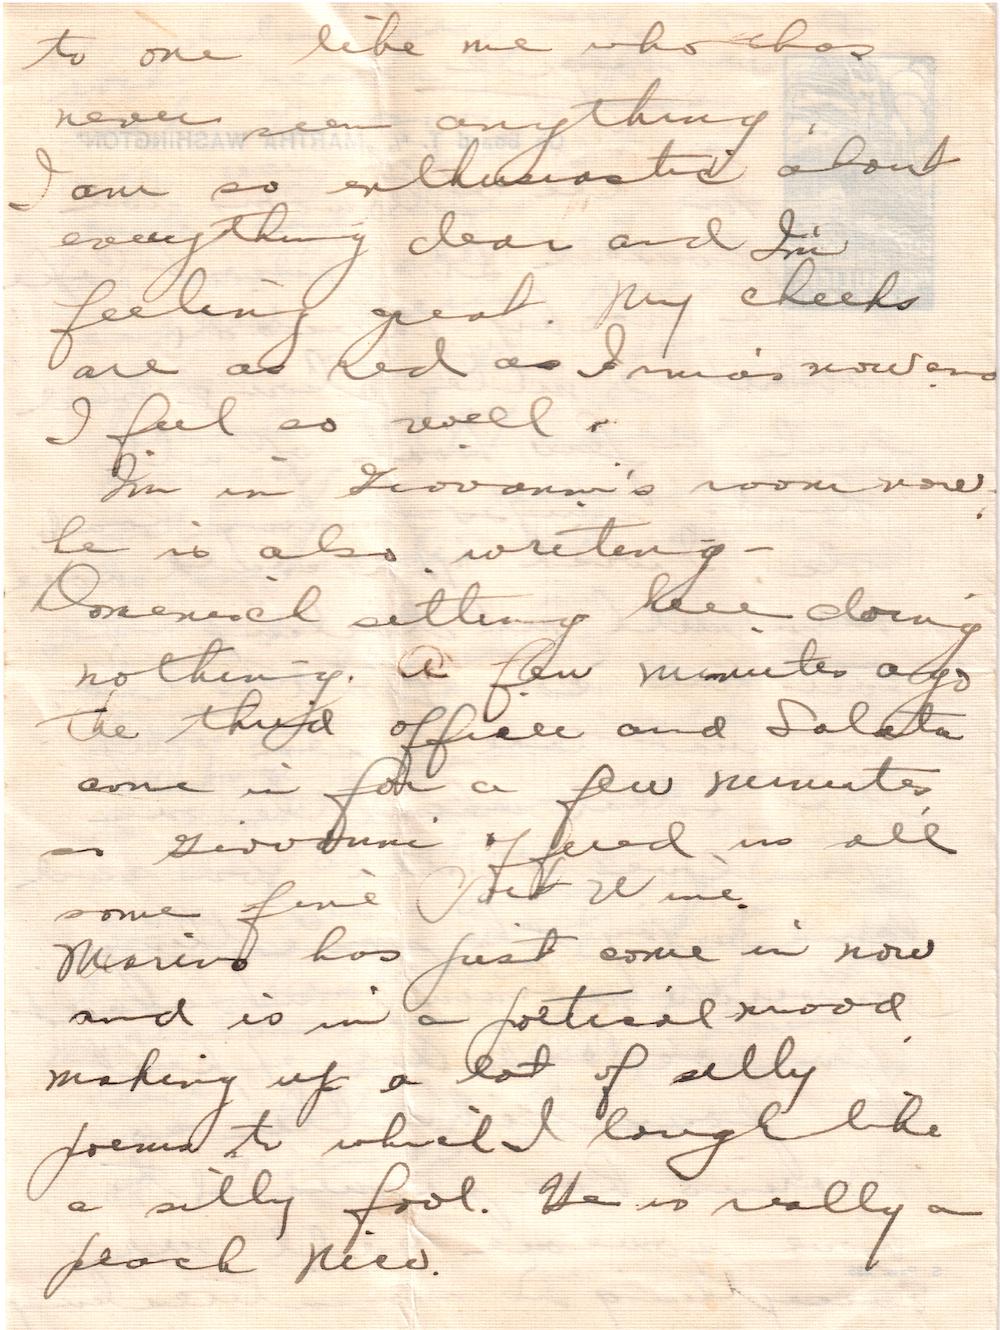 to one like me who has
never seen anything.
I am so enthusiastic about
everything dear and I'm
feeling great. My cheeks
are as red as Irma's now and
I feel so well.
I'm in Giovanni's room now.
he is also writing -
Domenick sitting here doing
nothing. A few minutes ago
the third officer and Salata
come in for a few minutes,
so Giovanni offered us all
some fine Port Wine.
Marino has just come in now
and is in a poetical mood,
making up a lot of silly
poems to which I laugh like
a silly fool. He is really a
peach Nico.